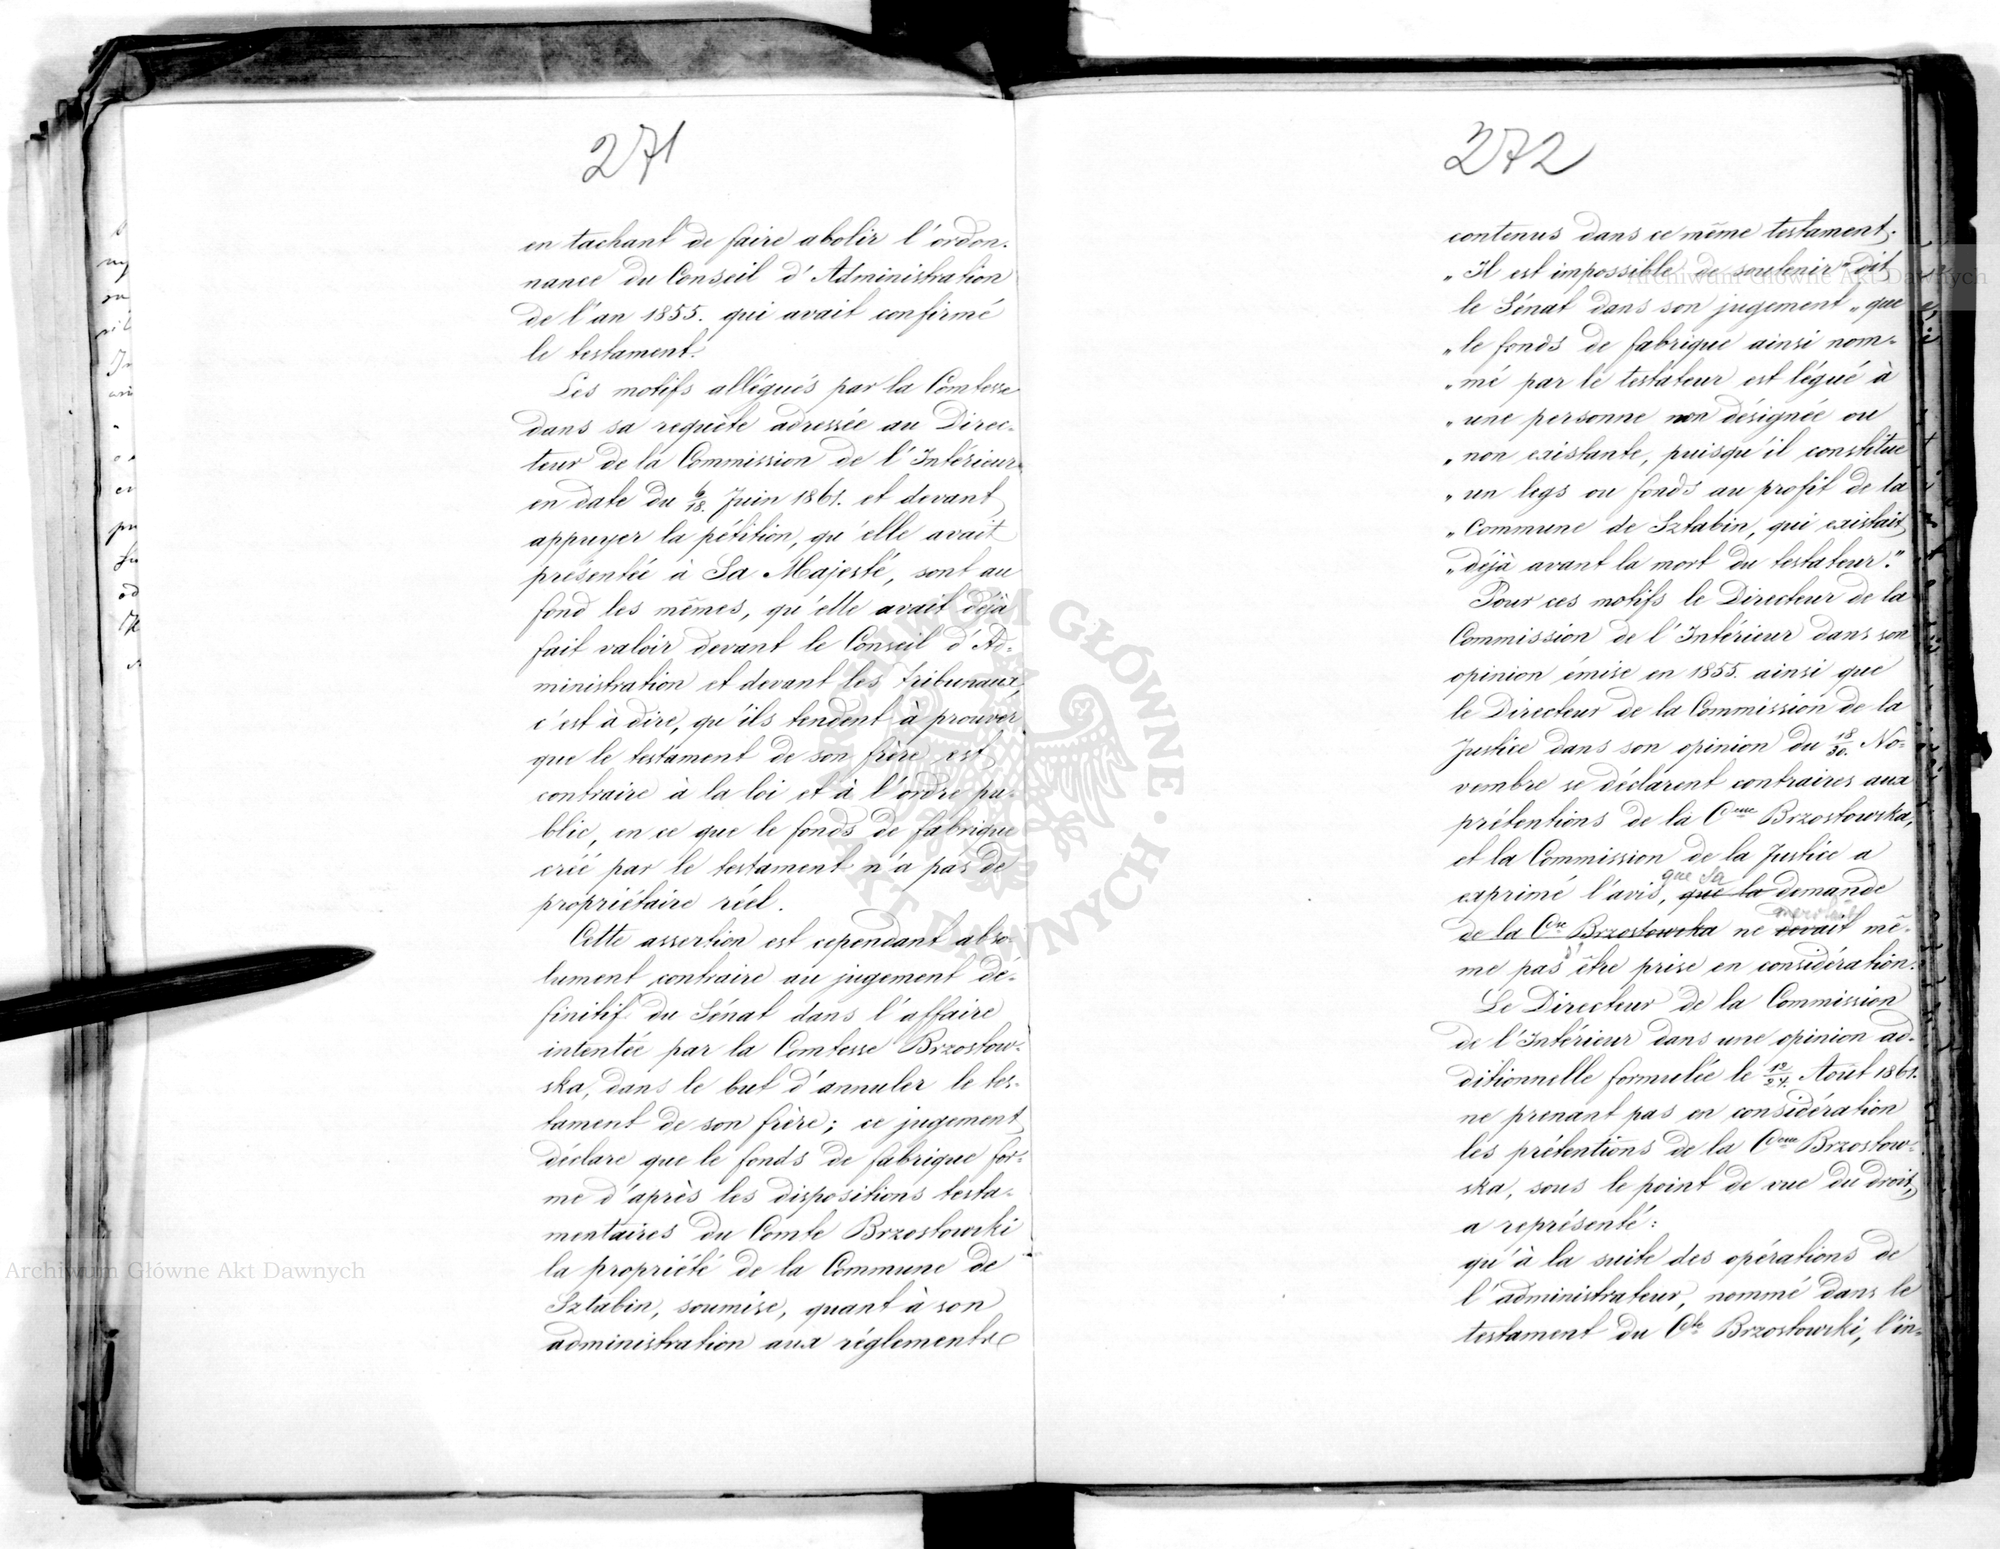 271
en tachant de faire abolir l'ordon-
nance du Conseil d'Administration
de l'an 1855. qui avait confirmé
le testament.
Les motifs allégués par la Comtesse
dans sa requête adressée au Direc-
teur de la Commission de l'Intérieur
en date du 6/18. Juin 1861. et devant
appuyer la pétition, qu'elle avait
présentée à Sa Majesté, sont au
fond les mêmes, qu'elle avait déjà
fait valoir devant le Conseil d'Ad-
ministration et devant les tribunaux,
c'est à dire, qu'ils tendent à prouver
que le testament de son frère est
contraire à la loi et à l'ordre pu-
blic, en ce que le fonds de fabrique
créé par le testament n'a pas de
propriétaire réel.
Cette assertion est cependant abso-
lument contraire au jugement dé-
finitif du Sénat dans l'affaire
intentée par la Comtesse Brzostow-
ska, dans le but d'annuler le tes-
tament de son frère; ce jugement
déclare que le fonds de fabrique for-
me d'après les dispositions testa-
mentaires du Comte Brzostowski
la propriété de la Commune de
Sztabin, soumise, quant à son
administration aux réglements
272
contenus dans ce même testament.
„Il est impossible de soutenir" dit
le Sénat dans son jugement „que
„le fonds de fabrique ainsi nom-
„mé par le testateur est légué à
„une personne non désignée ou
„non existante, puisqu'il constitue
„un legs ou fonds au profit de la
„Commune de Sztabin, qui existait
„déjà avant la mort du testateur."
Pour ces motifs le Directeur de la
Commission de l'Intérieur dans son
opinion émise en 1855. ainsi que
le Directeur de la Commission de la
Justice dans son opinion du 18/30. No-
vembre se déclarent contraires aux
prétentions de la Csse Brzostowska,
et la Commission de la Justice a
que sa
exprimé l'avis, que la demande
de la Csse Brzostowska ne devait mê-
me pas être prise en considération.
Le Directeur de la Commission
de l'Intérieur dans une opinion ad-
ditionnelle formulée le 12/24. Août 1861.
ne prenant pas en considération
les prétentions de la Csse Brzostow-
ska, sous le point de vue du droit,
a représenté:
qu'à la suite des opérations de
l'administrateur, nommé dans le
testament du Cte Brzostowski, l'in-
Archiwum Główne Akt Dawnych
Archiwum Główne Akt Dawnych
ARCHIWUM GŁÓWNE · AKT DAWNYCH ·